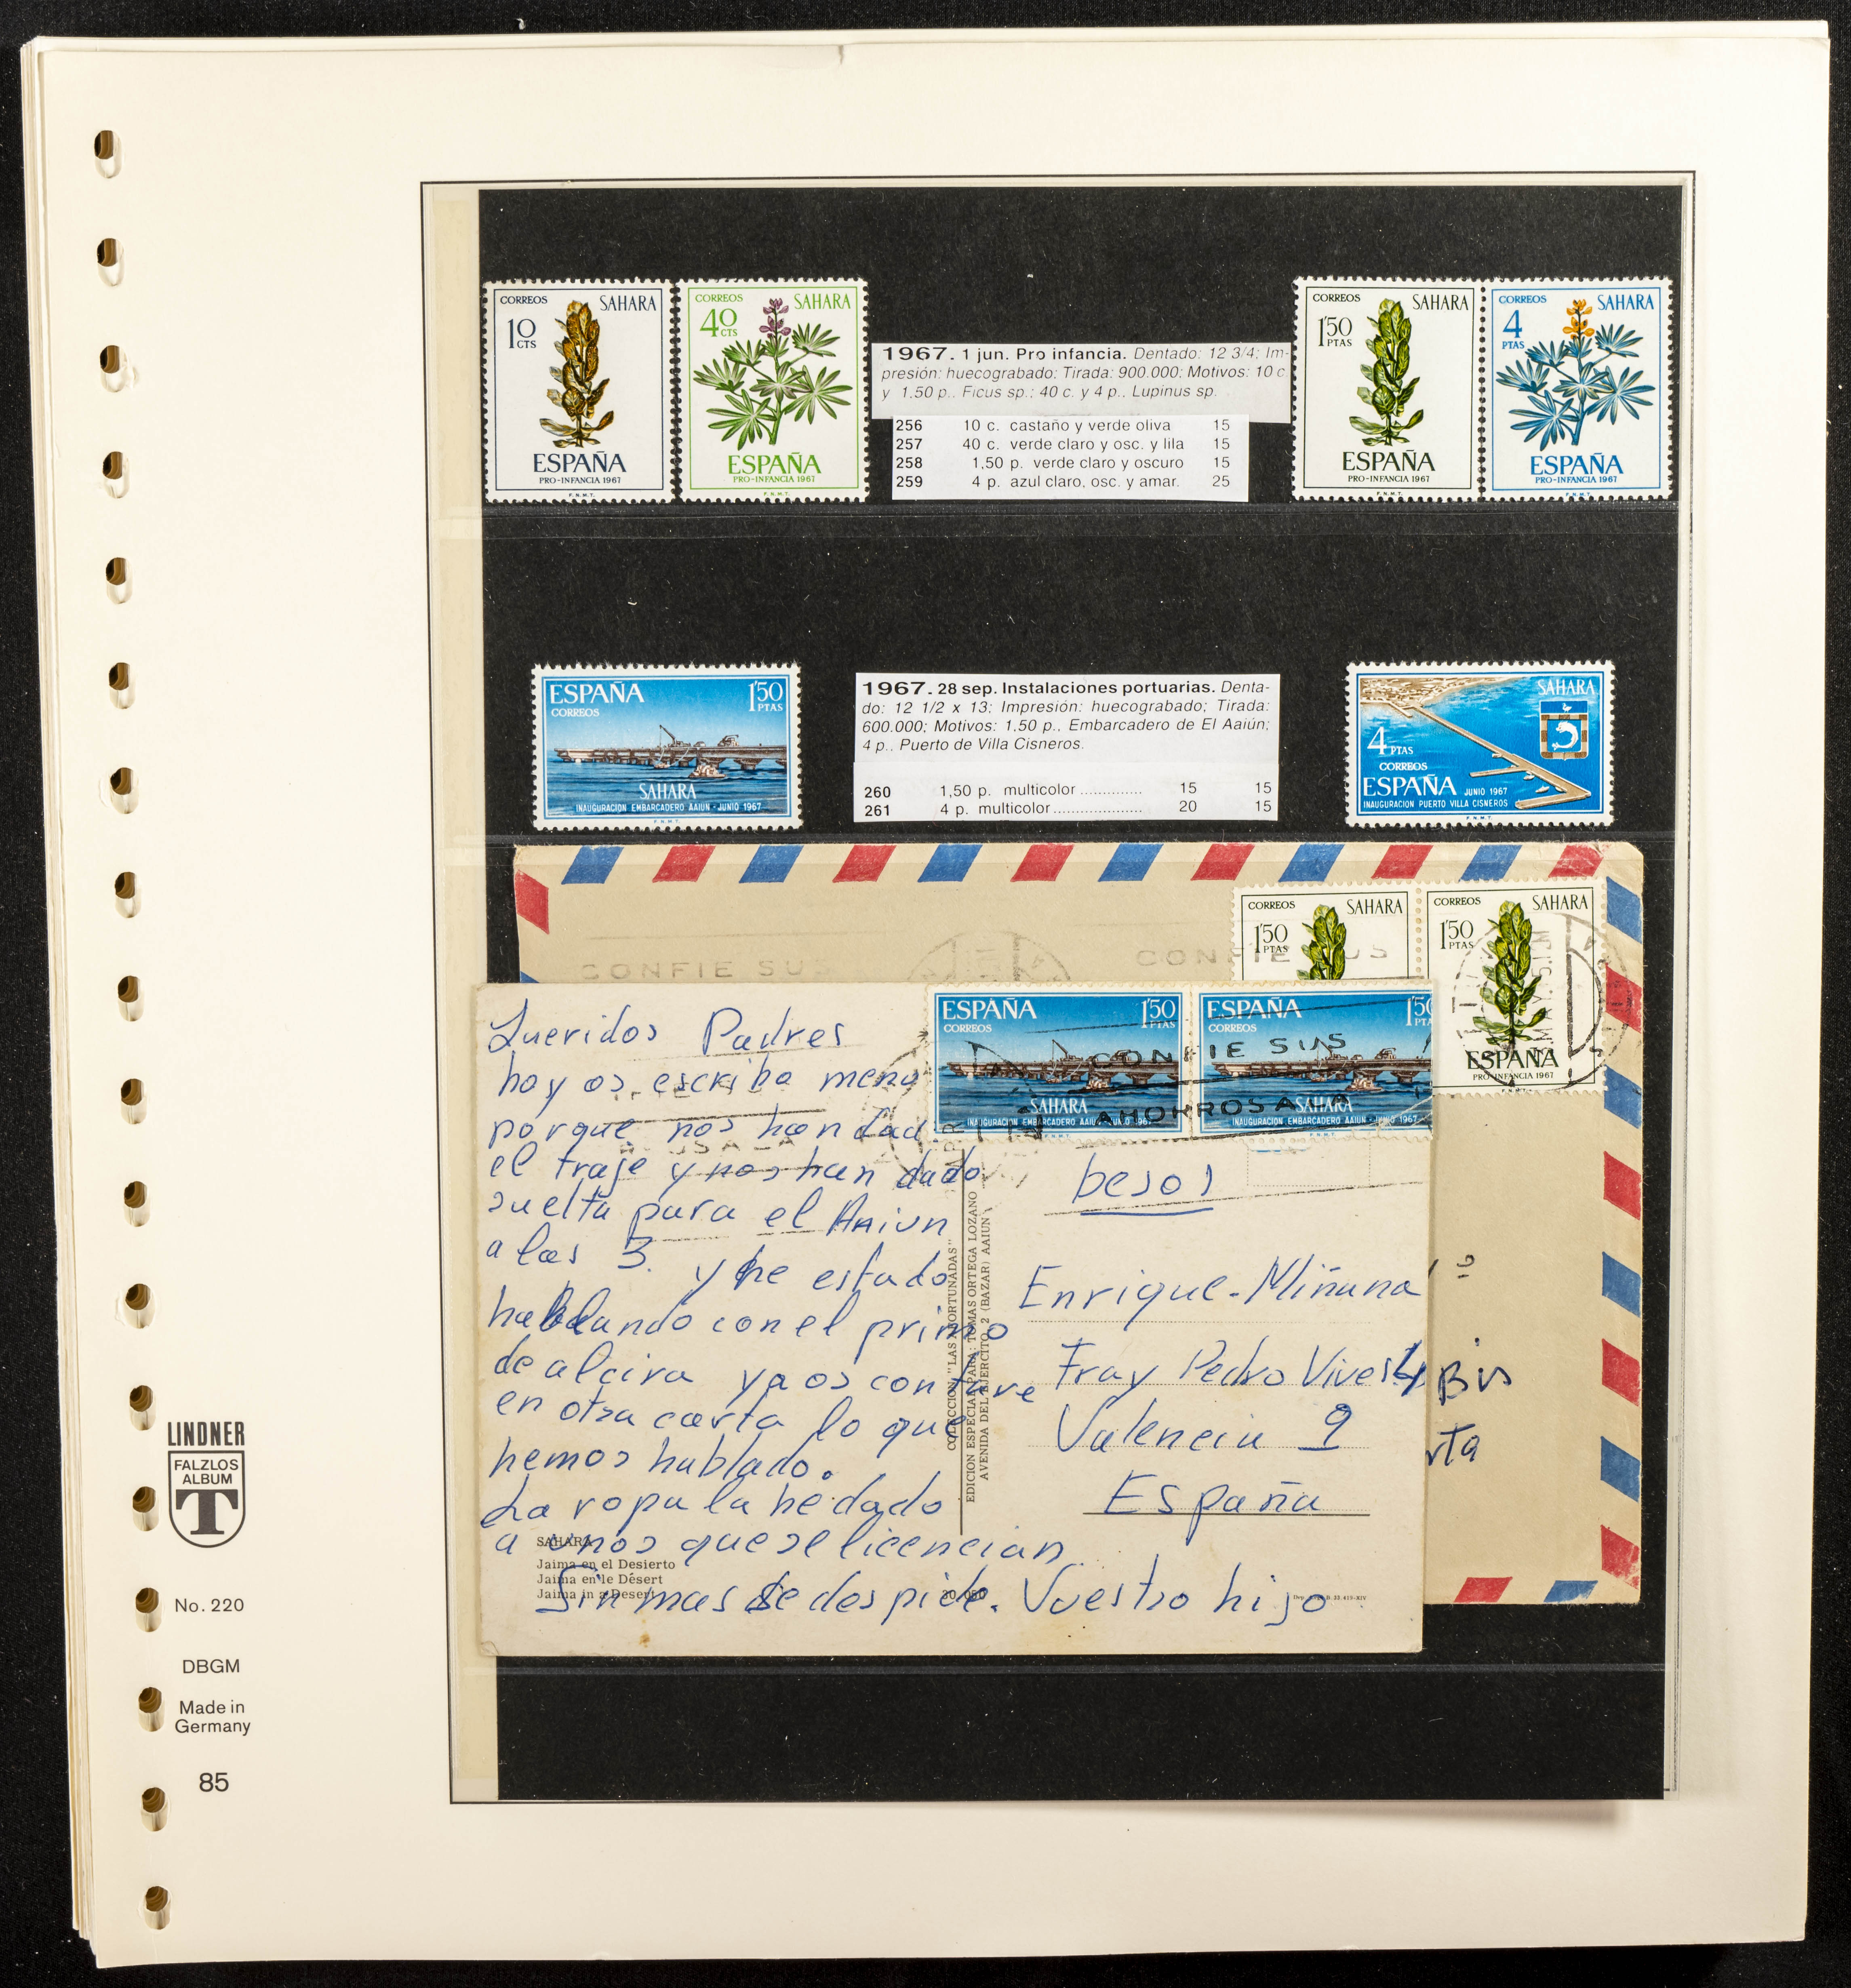 CORREOS SAHARA
10 CTS
ESPAÑA
PRO-INFANCIA 1967
F.N.M.T.
CORREOS SAHARA
40 CTS
ESPAÑA
PRO-INFANCIA 1967
F.N.M.T.
1967. 1 jun. Pro infancia. Dentado: 12 3/4; Im-
presión: huecograbado; Tirada: 900.000; Motivos: 10 c
y 1.50 p., Ficus sp.; 40 c. y 4 p., Lupinus sp.
256 10 c. castaño y verde oliva 15
257 40 c. verde claro y osc. y lila 15
258 1,50 p. verde claro y oscuro 15
259 4 p. azul claro, osc. y amar. 25
CORREOS SAHARA
1'50 PTAS
ESPAÑA
PRO-INFANCIA 1967
F.N.M.T.
CORREOS SAHARA
4 PTAS
ESPAÑA
PRO-INFANCIA 1967
F.N.M.T.
ESPAÑA 1'50
CORREOS PTAS
SAHARA
INAUGURACION EMBARCADERO AAIUN - JUNIO 1967
F.N.M.T.
1967. 28 sep. Instalaciones portuarias. Denta-
do: 12 1/2 x 13; Impresión: huecograbado; Tirada:
600.000; Motivos: 1,50 p., Embarcadero de El Aaiún;
4 p., Puerto de Villa Cisneros.
260 1,50 p. multicolor .............. 15 15
261 4 p. multicolor ..................... 20 15
SAHARA
4 PTAS
CORREOS
ESPAÑA JUNIO 1967
INAUGURACION PUERTO VILLA CISNEROS
F.N.M.T.
CONFIE SUS
CONFIE SUS
CORREOS SAHARA
1'50
PTAS
CORREOS SAHARA
1'50
PTAS
ESPAÑA
PRO-INFANCIA 1967
ESPAÑA 1'50
CORREOS PTAS
SAHARA
INAUGURACION EMBARCADERO AAIUN - JUNIO 1967
F.N.M.T.
ESPAÑA 1'50
CORREOS PTA
SAHARA
INAUGURACION EMBARCADERO AAIUN - JUNIO 1967
F.N.M.T.
CONFIE SUS
AHORROS A LA
Queridos Padres
hoy os escribo menos
porque nos han dado
el traje y nos han dado
suelta para el Aaiun
a las 3. y he estado
hablando con el primo
de alcira ya os contare
en otra carta lo que
hemos hablado.
La ropa la he dado
a unos que se licencian.
Sin mas se despide. Vuestro hijo
besos
Enrique-Miñana
Fray Pedro Vives 4
Valencia 9
España
Bis
rta
COLECCION "LAS AFORTUNADAS"
EDICION ESPECIAL PARA: TOMAS ORTEGA LOZANO
AVENIDA DEL EJERCITO, 2 (BAZAR) AAIUN
SAHARA
Jaima en el Desierto
Jaima en le Désert
Jaima in a Desert
LINDNER
FALZLOS
ALBUM
T
No. 220
DBGM
Made in
Germany
85